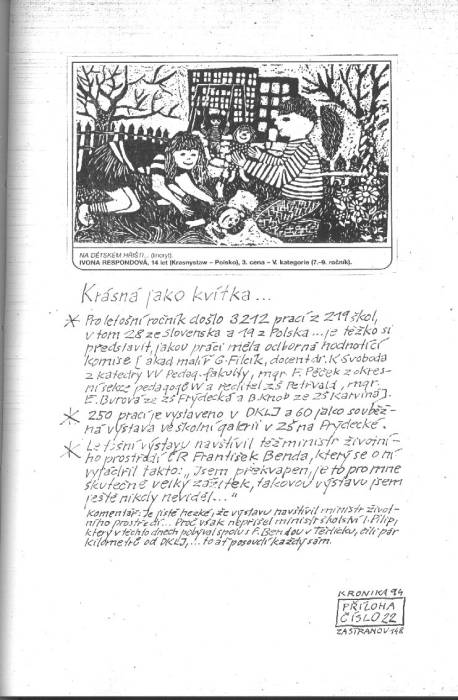 NA DĚTSKÉM HŘIŠTI... (linoryt).
IVONA RESPONDOVÁ, 14 let (Krasnystaw – Polsko), 3. cena – V. kategorie (7.–9. ročník).
Krásná jako kvítka...
* Pro letošní ročník došlo 3212 prací z 219 škol,
v tom 28 ze Slovenska a 19 z Polska ... je těžko si
představit, jakou práci měla odborná hodnotící
komise [akad malíř G. Filcík, docent dr. K Svoboda
z katedry VV Pedag. fakulty, mgr. F. Pěček z okres-
ní sekce pedagogů VV a ředitel ZŠ Petřvald, mgr.
E. Burová ze ZŠ Frýdecká a B. Knob ze ZŠ Karviná].
* 250 prací je vystaveno v DKLJ a 60 jako souběž-
ná výstava ve školní galerii v ZŠ na Frýdecké.
* Letošní výstavu navštívil též ministr životní-
ho prostředí ČR František Benda, který se o ní
vyjádřil takto: "Jsem překvapen, je to pro mne
skutečně velký zážitek, takovou výstavu jsem
ještě nikdy neviděl..."
Komentář: Je jistě hezké, že výstavu navštívil ministr život-
ního prostředí... Proč však nepřišel ministr školství I. Pilip,
který v těchto dnech pobýval spolu s F. Bendou v Těrlicku, čili pár
kilometrů od DKLJ,... to ať posoudí každý sám.
KRONIKA 94
PŘÍLOHA
ČÍSLO 22
ZA STRANOU 148